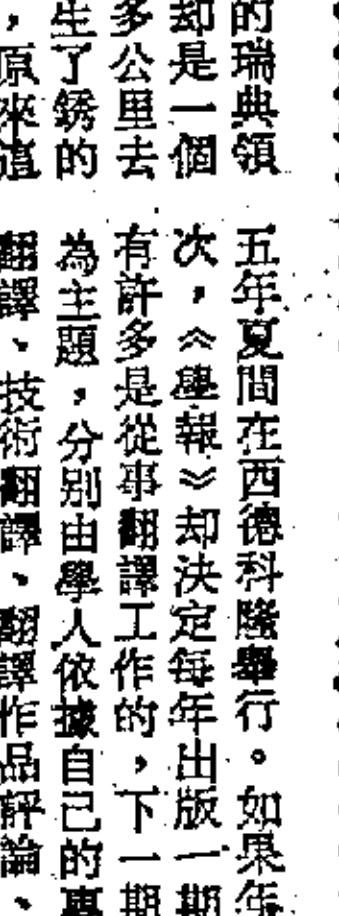 的瑞典領
却是一個
多公里去
生了銹的
，原來這
五年夏間在西德科隆舉行。如果年
次，《學報》却決定每年出版一期
有許多是從事翻譯工作的，下一期
為主題，分別由學人依據自己的專
翻譯、技術翻譯、翻譯作品評論、